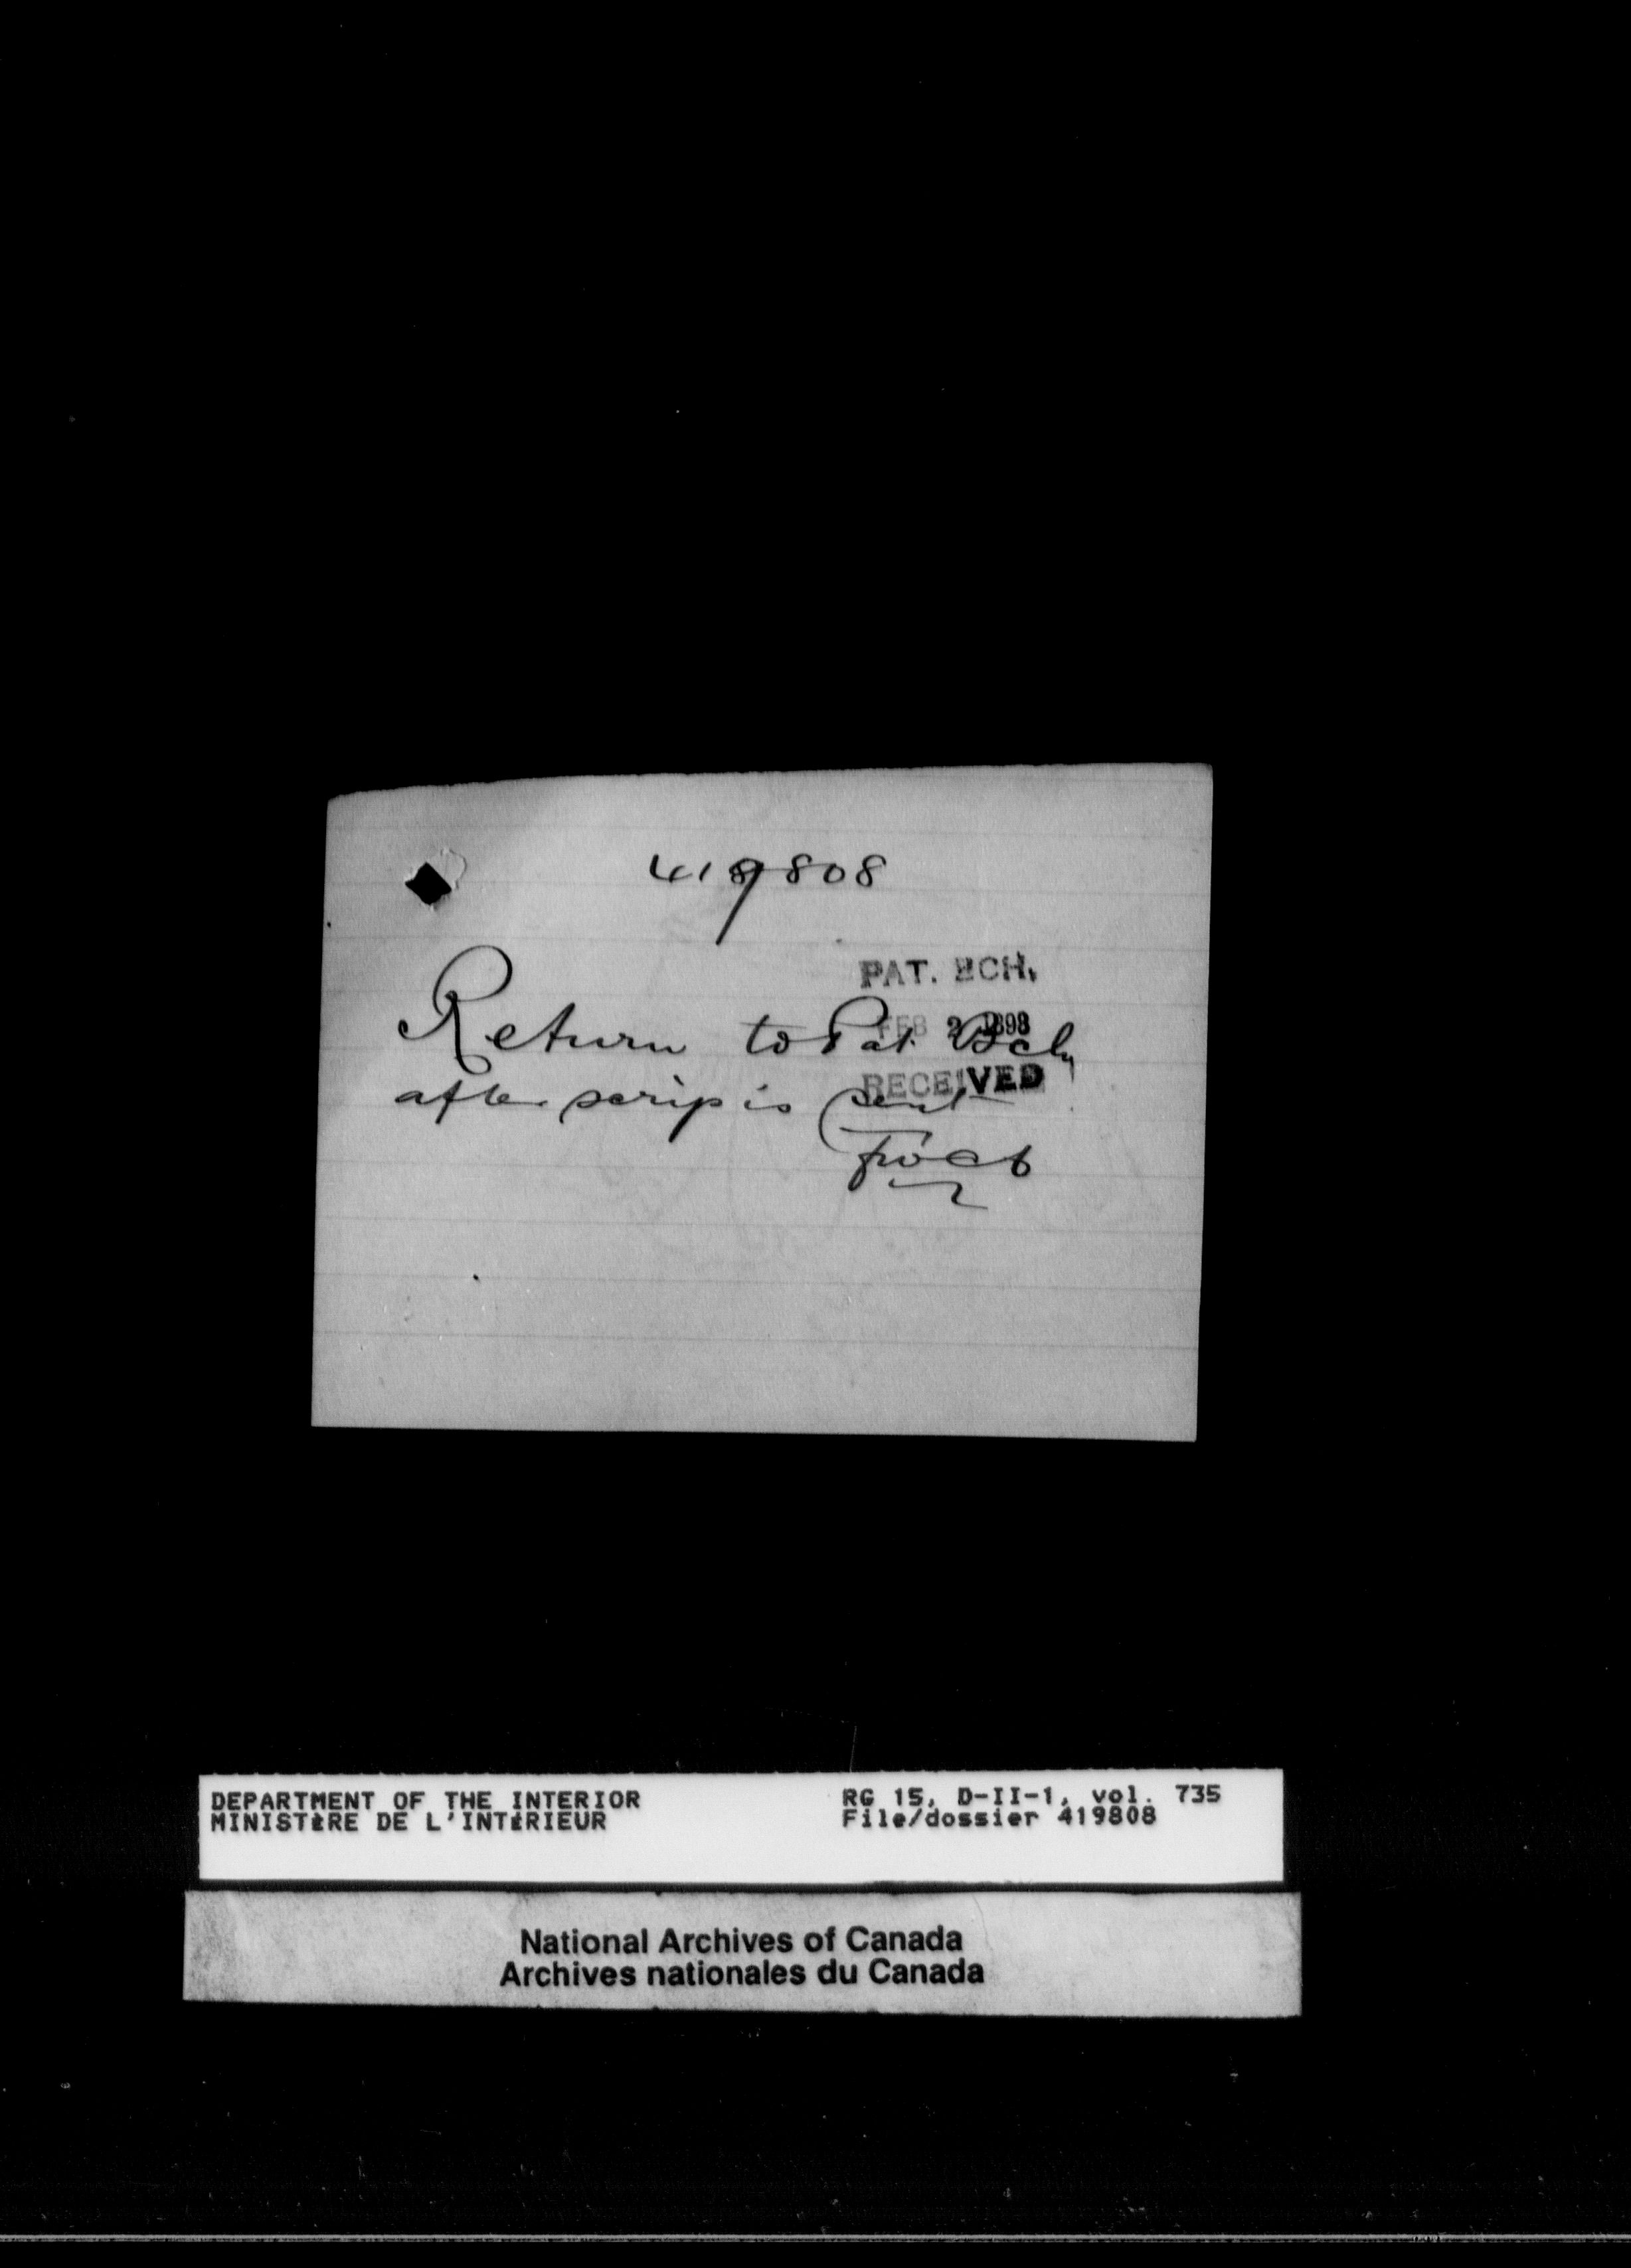 419808
PAT. BCH.
FEB 2 1898
RECEIVED
Return to Pat. Bch
after scrip is sent
DEPARTMENT OF THE INTERIOR
MINISTÈRE DE L'INTÉRIEUR
RG 15, D-II-1, vol. 735
File/dossier 419808
National Archives of Canada
Archives nationales du Canada